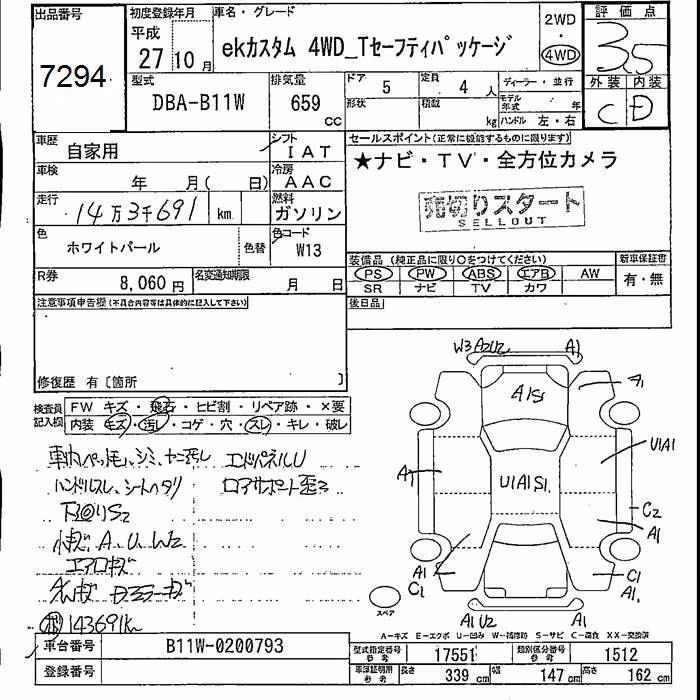 出品番号 初度登録年月 車名・グレード 2WD 評価点
7294 平成 27年10月 ekカスタム 4WD_Tセーフティパッケージ ・ 4WD 3.5
型式 排気量 ドア 定員 ディーラー・並行 外装 内装
DBA-B11W 659 cc 5 4人 モデル年式 年 C D
形状 積載 kg ハンドル 左・右
車歴 自家用 シフト IAT セールスポイント(正常に機能するものに限ります)
車検 年 月( 日) 冷房 AAC ★ナビ・TV・全方位カメラ
走行 14万3千691 km 燃料 ガソリン 売切りスタート
SELLOUT
色 ホワイトパール 色替 色コード W13
装備品(純正品に限り○をつけてください) 新車保証書
R券 8,060円 名変通知期限 月 日 PS PW ABS エアB AW 有・無
SR ナビ TV カワ
注意事項申告欄(不具合内容等は具体的に記入して下さい) 後日品
修復歴 有〔箇所 〕
検査員記入欄 FW キズ・飛石・ヒビ割・リペア跡・×要
内装 キズ・汚レ・コゲ・穴・スレ・キレ・破レ
W3 A2U2 A1
A1S1 A1
U1A1
A1 U1A1S1
C2
A1
A1 C1
C1 A1
A1U2 A1
スペア
エンドパネルU
ハンドルスレ、シートヘタリ ロアサポート歪3
下回りS2
小キズ、A、U、W2
エアロキズ
143691km
A-キズ E-エクボ U-凹み W-補修跡 S-サビ C-腐食 XX-交換済
車台番号 B11W-0200793 型式指定番号 参考 17551 類別区分番号 参考 1512
登録番号 車庫証明用 参考 長さ 339cm 幅 147cm 高さ 162cm